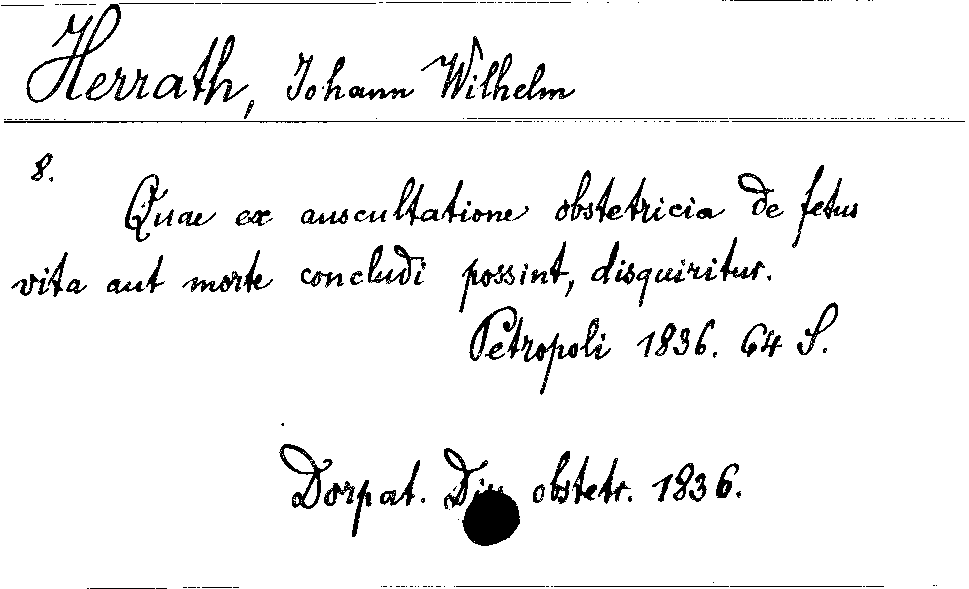 Herrath, Johann Wilhelm
8.
Quae ex auscultatione obstetricia de fetus
vita aut morte concludi possint, disquiritur.
Petropoli 1836. 64 S.
Dorpat. Diss. obstetr. 1836.